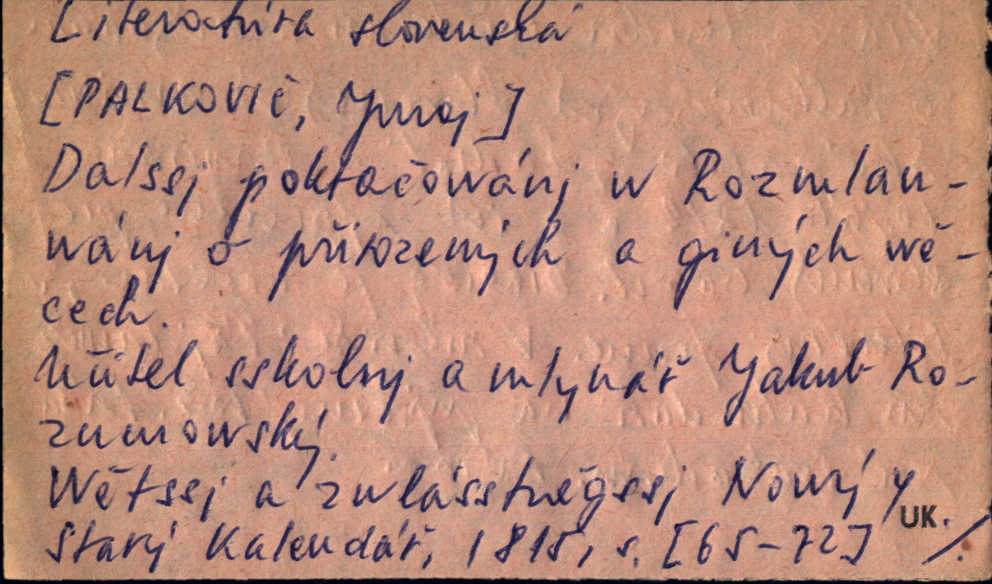 Literatúra slovenská
[PALKOVIČ, Juraj]
Dalssj pokračowánj w Rozmlau-
wánj o přirozených a giných wě-
cech.
Učitel sskolnj a mlynář Jakub Ro-
zumowský.
Wětssj a zwlásstněgssj Nowý y
Starý Kalendář, 1815, s. [65-72]
UK.